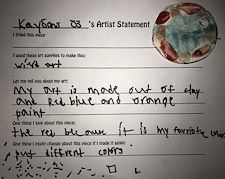 Kaydans os 's Artist Statement
I titled this piece
I used these art supplies to make this:
wire art
Let me tell you about my art:
my art is made out of clay
and red blue and orange
paint
One thing I love about this piece:
the red because it is my favorite color
One thing I might change about this piece if I made it again:
put diffrent colors